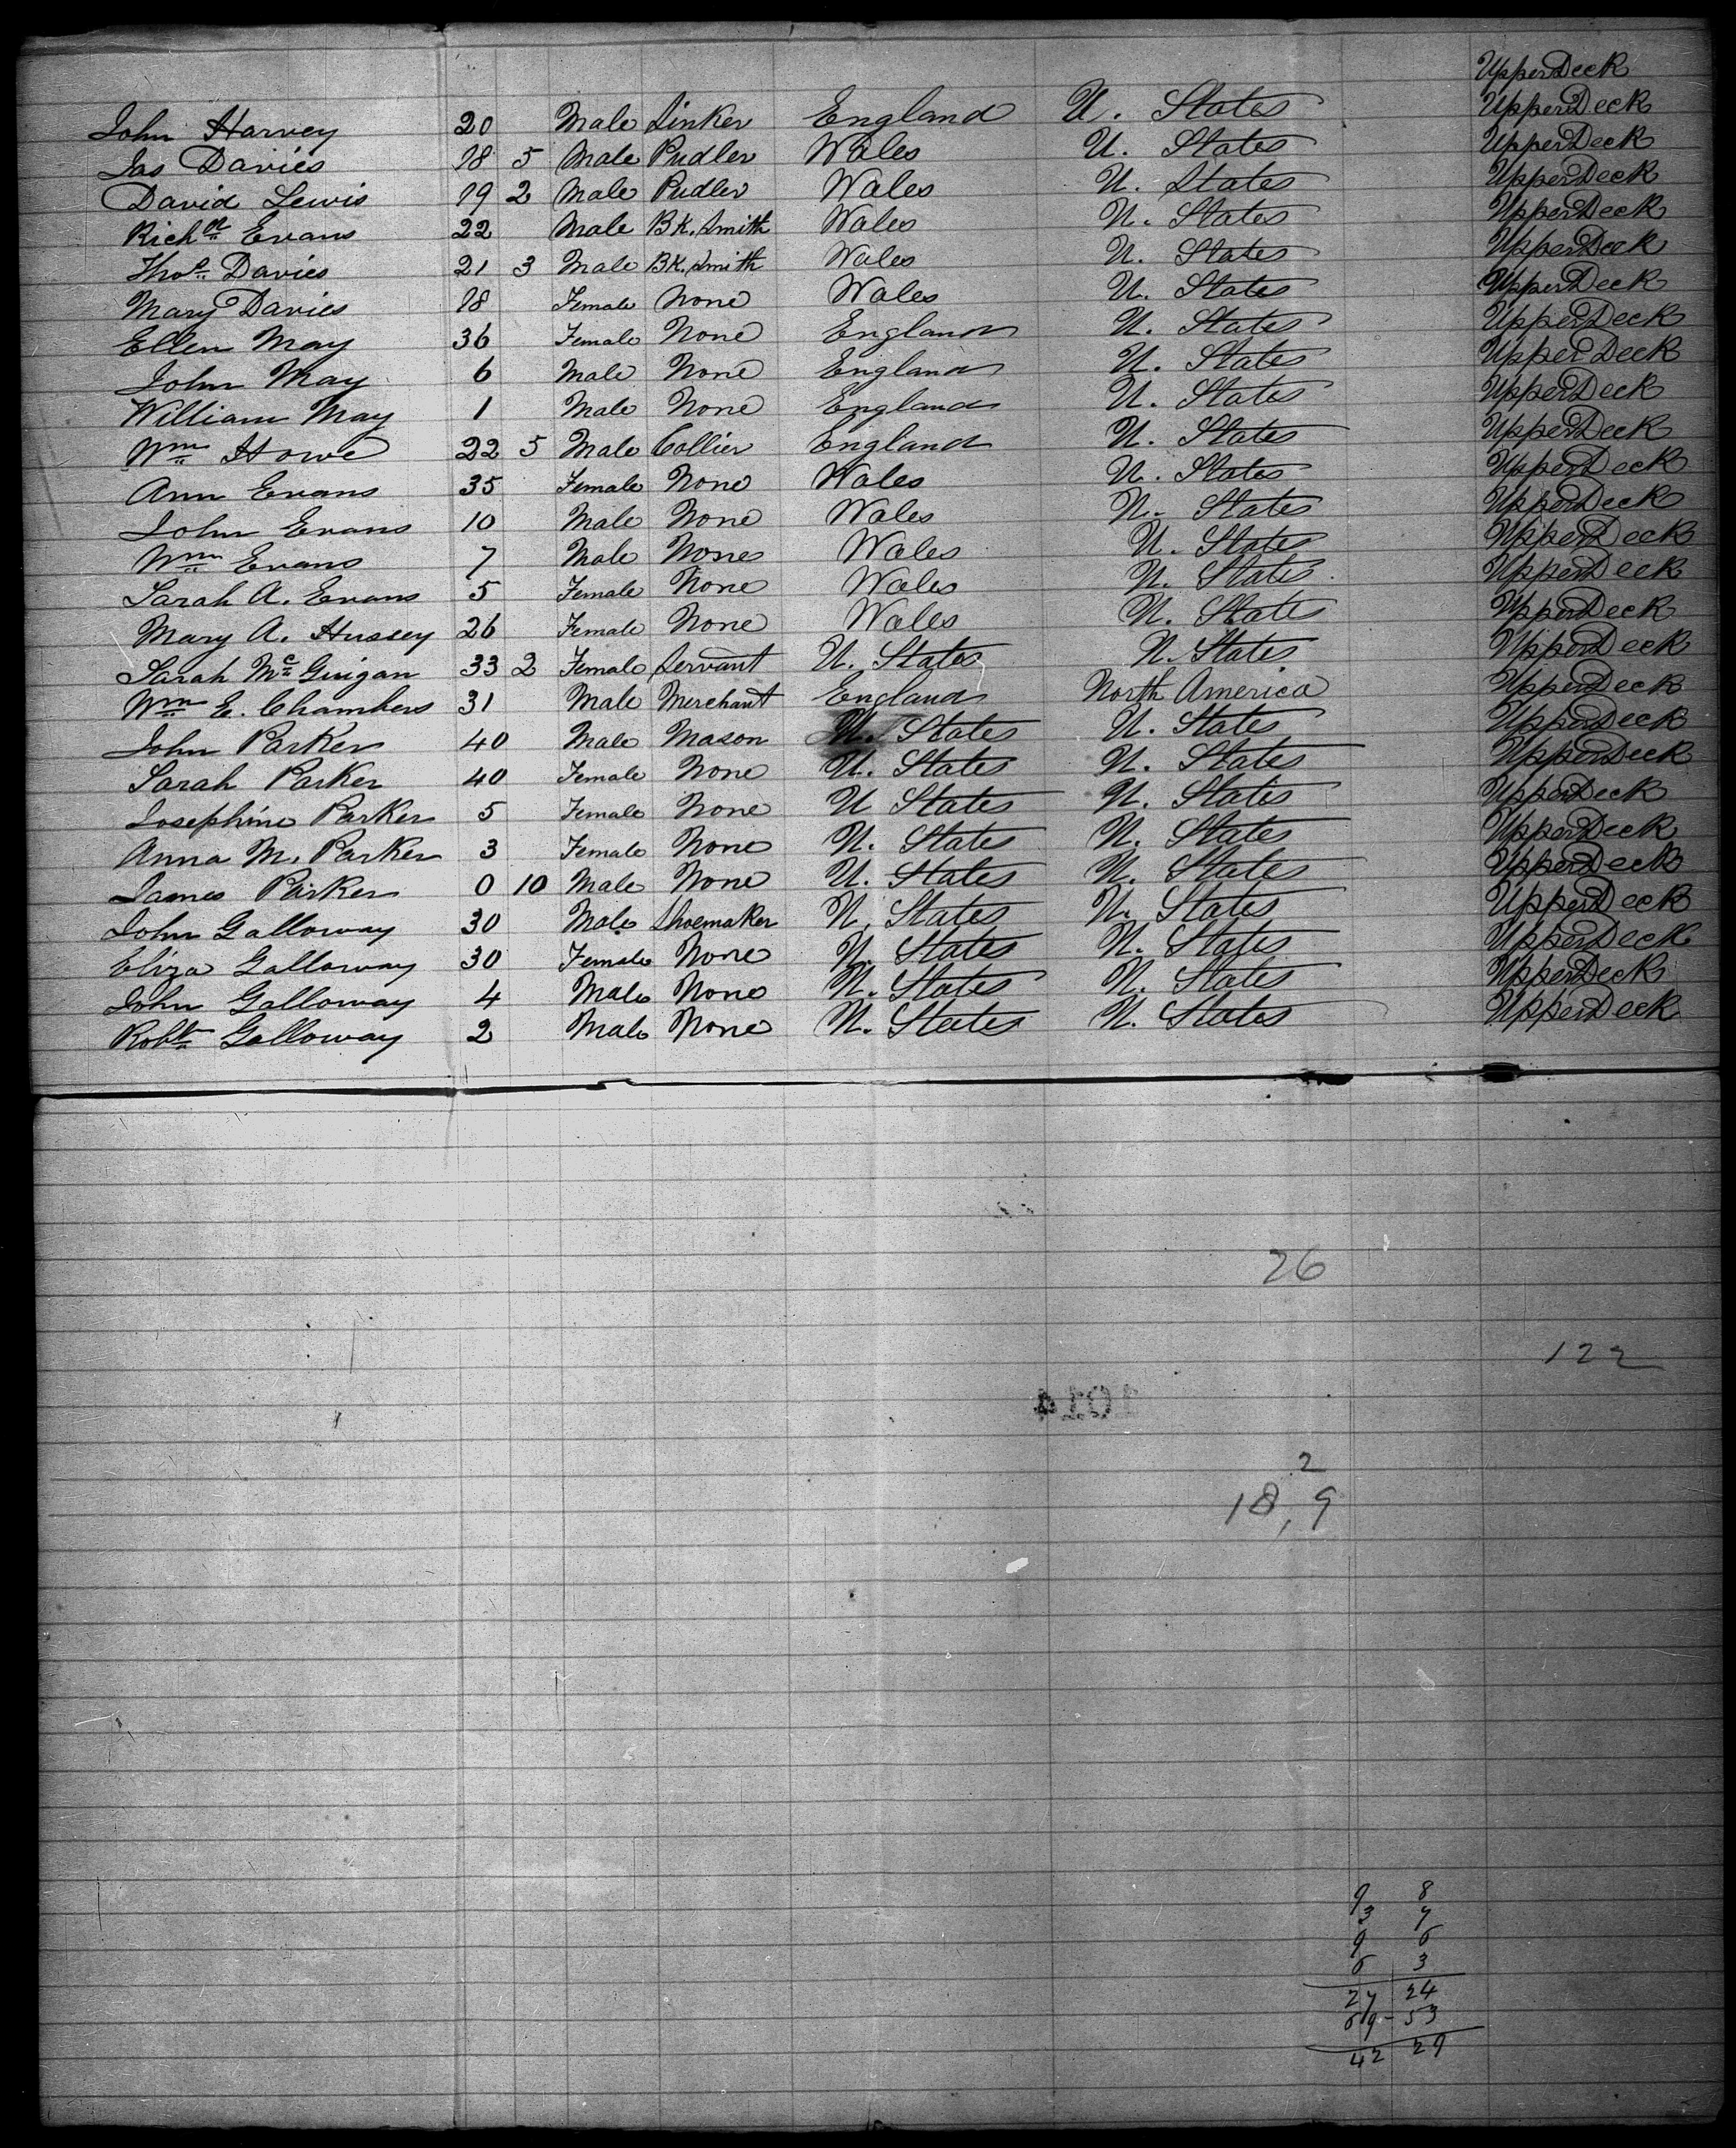 Upper Deck
John Harvey 20 Male Sinker England U. States Upper Deck
Jas Davies 18 5 Male Pudler Wales U. States Upper Deck
David Lewis 19 2 Male Pudler Wales U. States Upper Deck
Richd Evans 22 Male Bk. Smith Wales U. States Upper Deck
Thos Davies 21 3 Male Bk. Smith Wales U. States Upper Deck
Mary Davies 18 Female None Wales U. States Upper Deck
Ellen May 36 Female None England U. States Upper Deck
John May 6 Male None England U. States Upper Deck
William May 1 Male None England U. States Upper Deck
Wm Howe 22 5 Male Collier England U. States Upper Deck
Ann Evans 35 Female None Wales U. States Upper Deck
John Evans 10 Male None Wales U. States Upper Deck
Wm Evans 7 Male None Wales U. States Upper Deck
Sarah A. Evans 5 Female None Wales U. States Upper Deck
Mary A. Hussey 26 Female None Wales U. States Upper Deck
Sarah Mc Guigan 33 2 Female Servant U. States U. States Upper Deck
Wm E. Chambers 31 Male Merchant England North America Upper Deck
John Parker 40 Male Mason U. States U. States Upper Deck
Sarah Parker 40 Female None U. States U. States Upper Deck
Josephine Parker 5 Female None U States U. States Upper Deck
Anna M. Parker 3 Female None U. States U. States Upper Deck
James Parker 0 10 Male None U. States U. States Upper Deck
John Galloway 30 Male Shoemaker U. States U. States Upper Deck
Eliza Galloway 30 Female None U. States U. States Upper Deck
John Galloway 4 Male None U. States U. States Upper Deck
Robt Galloway 2 Male None U. States U. States Upper Deck
26
122
1014
2
18, 9
9 8
3 7
9 6
6 3
27 24
69 - 53
42 29